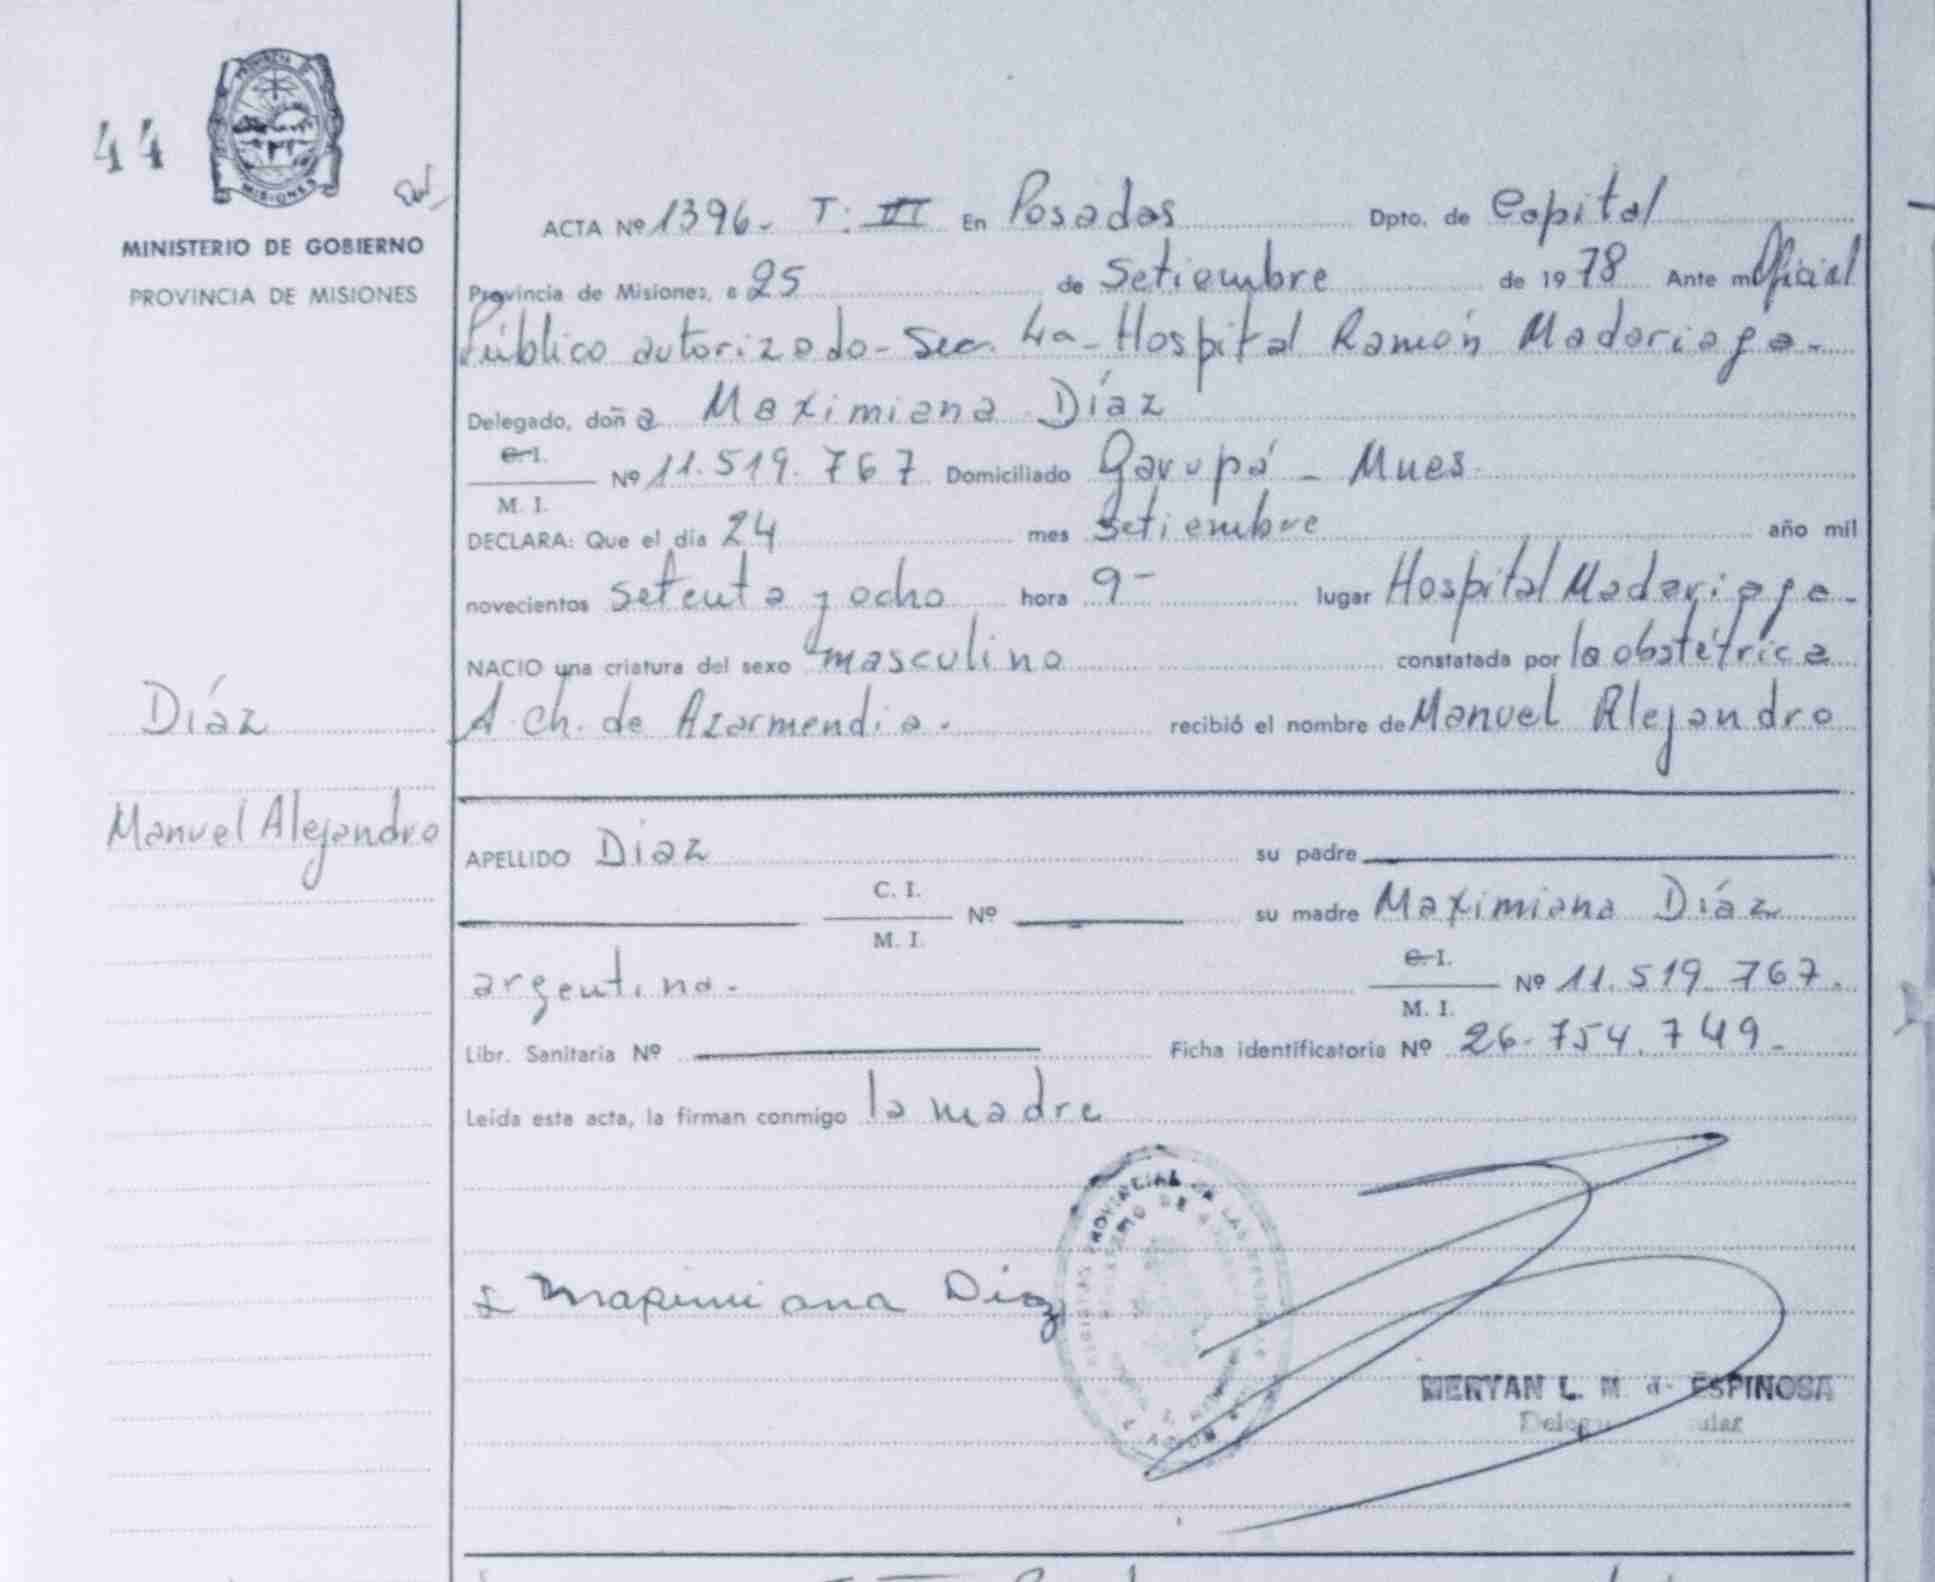 44
PROVINCIA DE
MISIONES
MINISTERIO DE GOBIERNO
PROVINCIA DE MISIONES
ACTA Nº 1396- T: VI En Posadas Dpto. de Capital
Provincia de Misiones, a 25 de Setiembre de 1978 Ante mi Oficial
Público autorizado - Sec. 4a - Hospital Ramón Madariaga -
Delegado, doña Maximiana Díaz
C. I.
Nº 11.519.767 Domiciliado Garupá - Mnes
M. I.
DECLARA: Que el día 24 mes setiembre año mil
novecientos setenta y ocho hora 9- lugar Hospital Madariaga -
NACIO una criatura del sexo masculino constatada por la obstétrica
A. Ch. de Azarmendia. recibió el nombre de Manuel Alejandro
Díaz
Manuel Alejandro
APELLIDO Díaz su padre
C. I.
Nº su madre Maximiana Díaz
M. I.
argentina -
C. I.
Nº 11.519.767.
M. I.
Libr. Sanitaria Nº Ficha identificatoria Nº 26.754.749-
Leída esta acta, la firman conmigo la madre
PROVINCIAL DE LAS
Maximiana Diaz
MERYAN L. M. de ESPINOSA